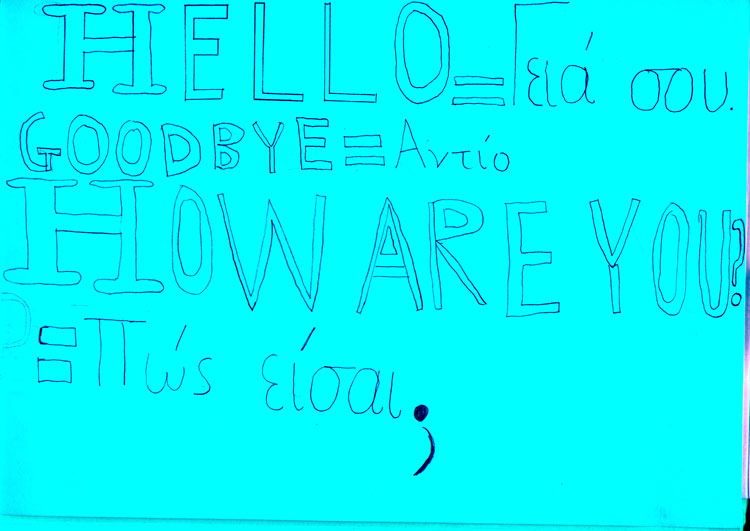 HELLO = Γειά σου.
GOODBYE = Αντίο
HOW ARE YOU?
= Πώς είσαι;